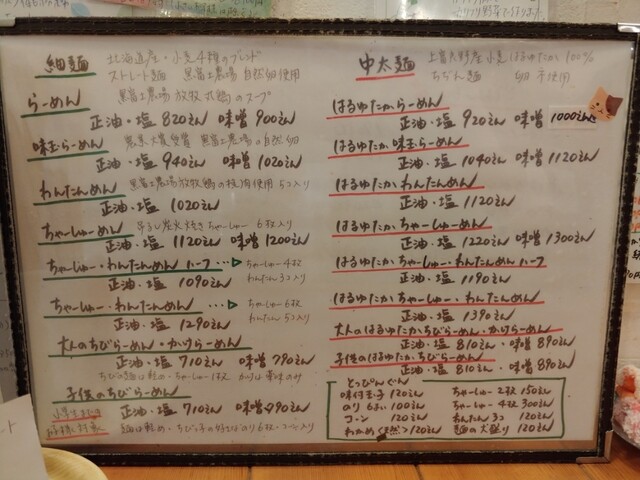 細麺
北海道産・小麦4種のブレンド
ストレート麺 黒富士農場 自然卵使用
らーめん 黒富士農場 放牧 丸鶏のスープ
正油・塩 820えん 味噌 900えん
味玉らーめん 農業大賞受賞 黒富士農場の自然卵
正油・塩 940えん 味噌 1020えん
わんたんめん 黒富士農場放牧鶏の挽肉使用 5コ入り
正油・塩 1020えん
ちゃーしゅーめん 吊るし炭火焼きちゃーしゅー 6枚入り
正油・塩 1120えん 味噌 1200えん
ちゃーしゅー・わんたんめん ハーフ・・・ ちゃーしゅー4枚
わんたん3コ入り
正油・塩 1090えん
ちゃーしゅー・わんたんめん ・・・ ちゃーしゅー6枚
わんたん5コ入り
正油・塩 1290えん
大人のちびらーめん・かけらーめん
正油・塩 710えん 味噌 790えん
ちびの麺は軽め・ちゃーしゅー1枚
子供のちびらーめん
正油・塩 710えん 味噌 790えん
中太麺
上富良野産小麦はるゆたか100%
ちぢれ麺 卵不使用
はるゆたからーめん
正油・塩 920えん 味噌 1000えん
はるゆたか味玉らーめん
正油・塩 1040えん 味噌 1120えん
はるゆたかわんたんめん
正油・塩 1120えん
はるゆたかちゃーしゅーめん
正油・塩 1220えん 味噌 1300えん
はるゆたかちゃーしゅー・わんたんめん ハーフ
正油・塩 1190えん
はるゆたかちゃーしゅー・わんたんめん
正油・塩 1390えん
大人のはるゆたかちびらーめん・かけらーめん
正油・塩 810えん・味噌 890えん
子供のはるゆたかちびらーめん
正油・塩 810えん・味噌 890えん
とっぴんぐ
味付玉子 120えん ちゃーしゅー2枚 150えん
のり6まい 100えん ちゃーしゅー4枚 300えん
コーン 120えん わんたん3コ 120えん
わかめ<天然> 120えん 麺の大盛り 120えん